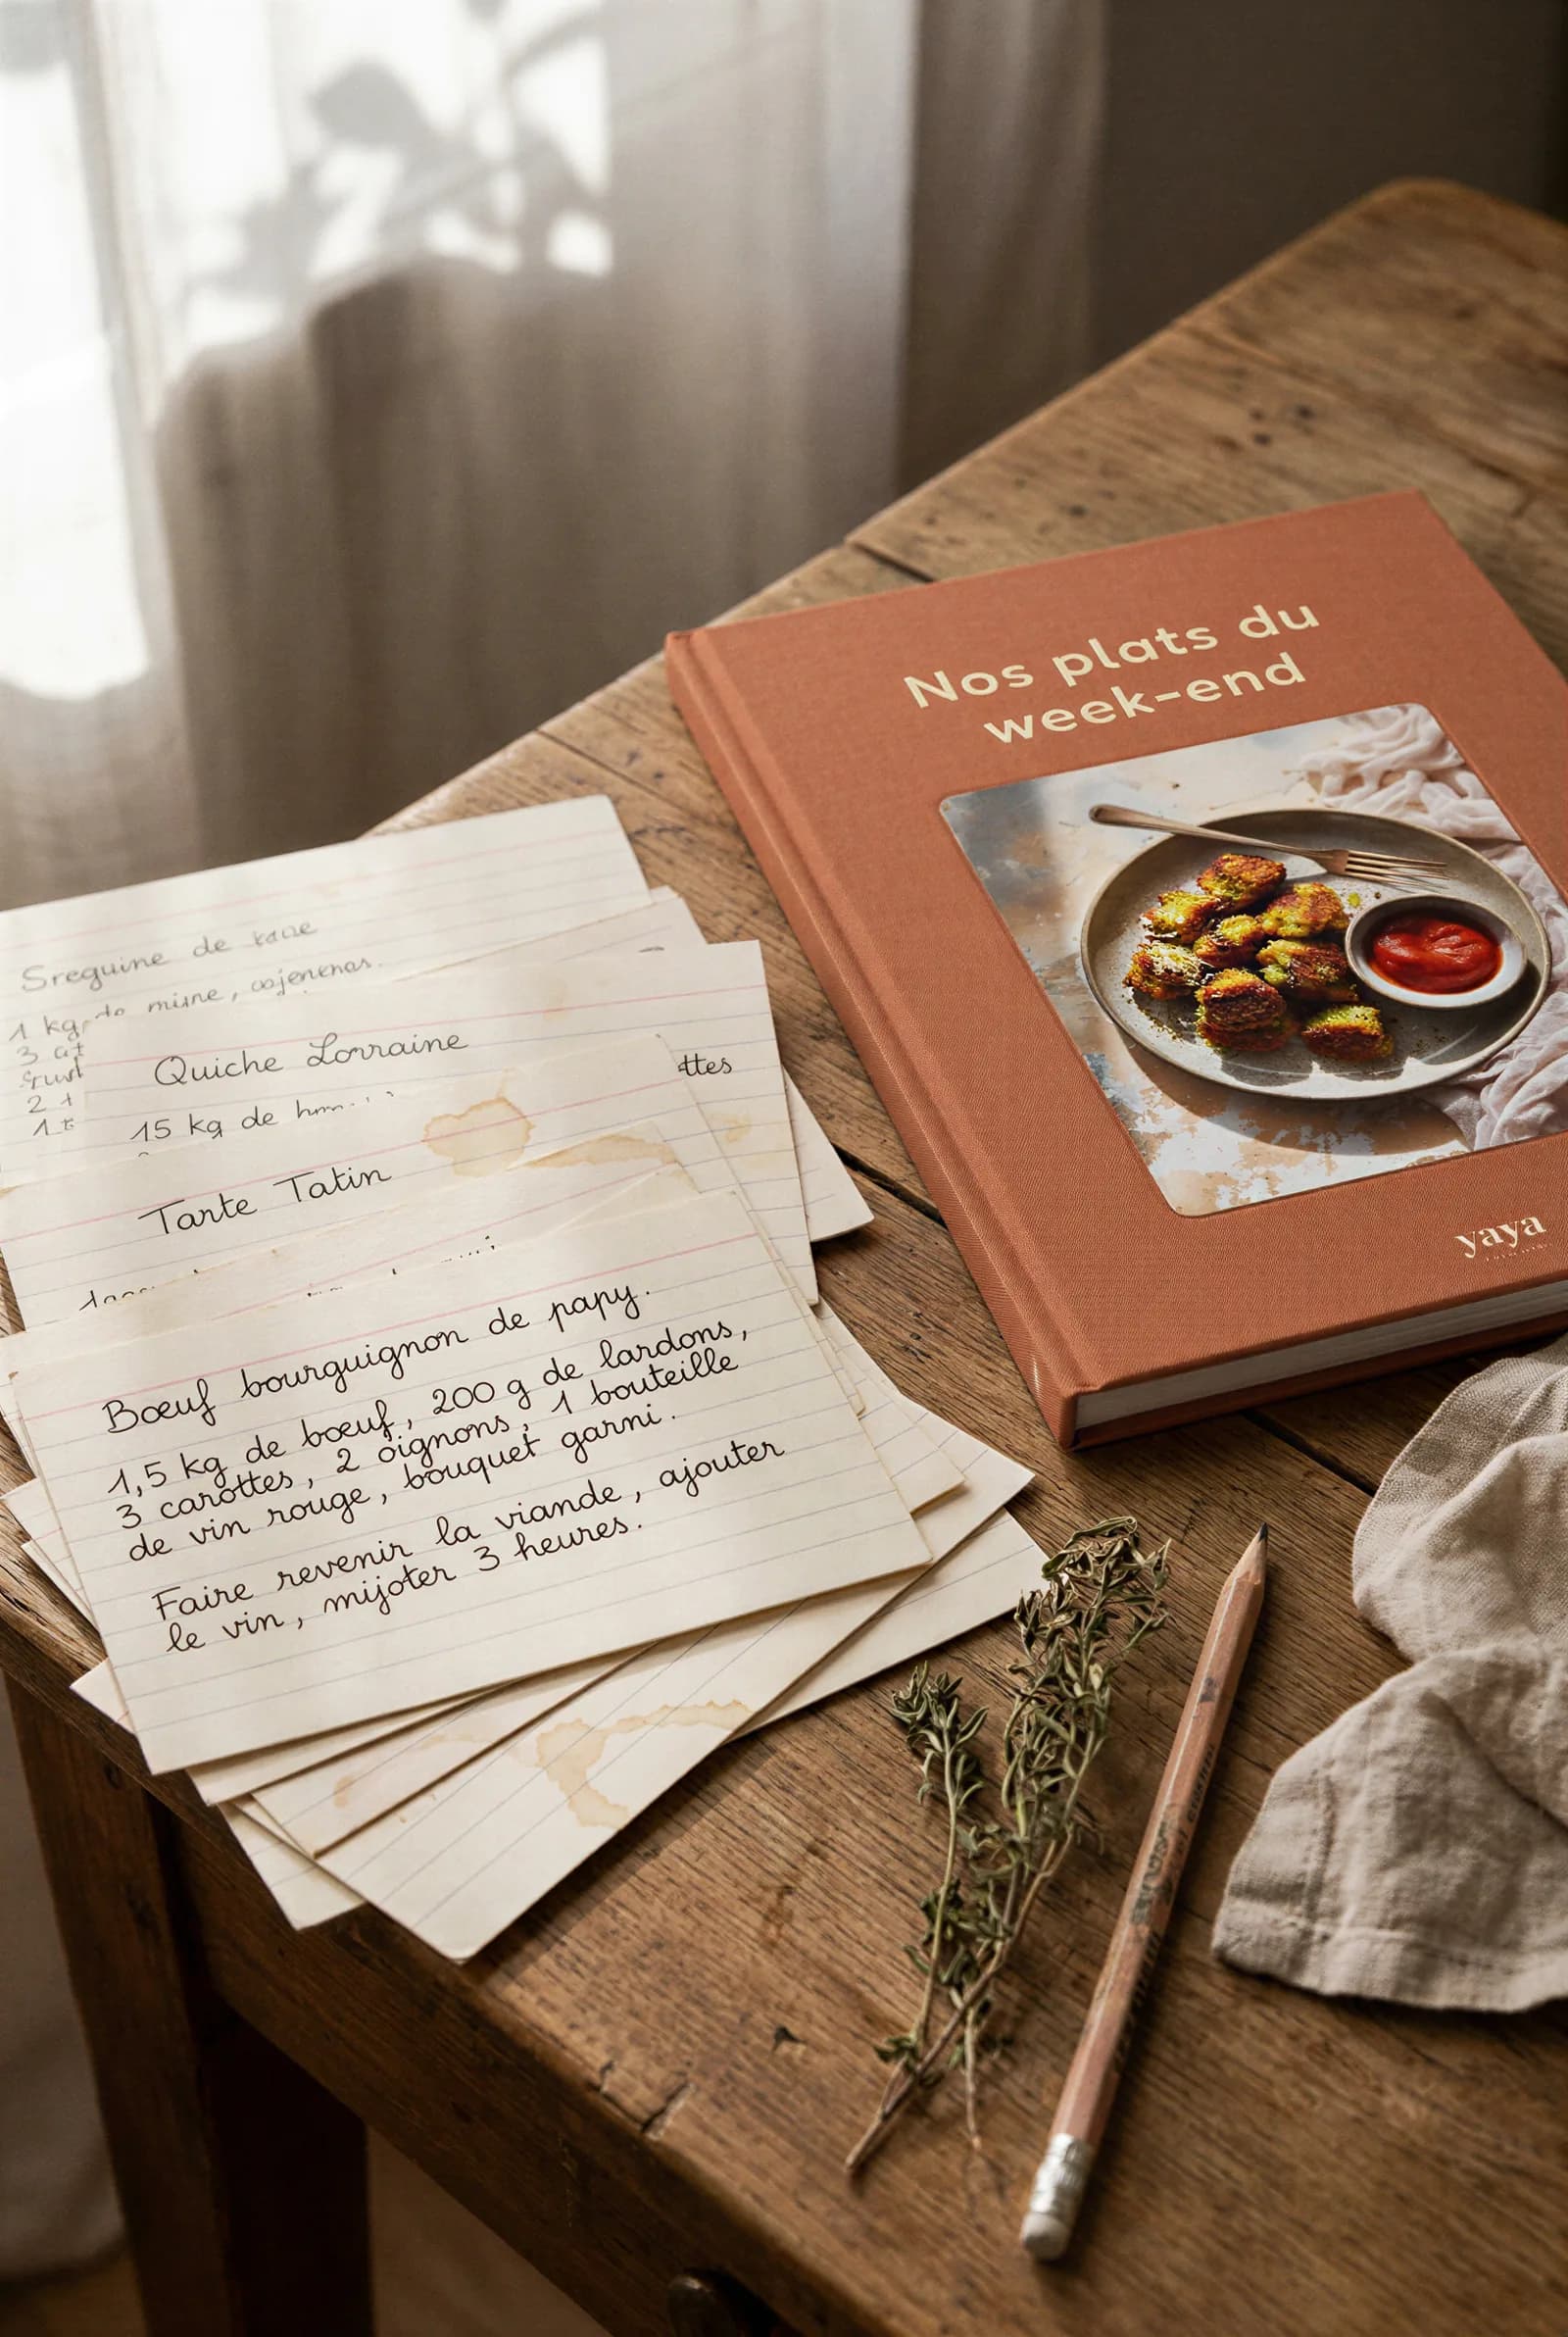 Nos plats du
week-end
yaya
de
1 kg
3
2
1
Quiche Lorraine
15 kg de
ttes
Tarte Tatin
Bœuf bourguignon de papy.
1,5 kg de bœuf, 200 g de lardons,
3 carottes, 2 oignons, 1 bouteille
de vin rouge, bouquet garni.
Faire revenir la viande, ajouter
le vin, mijoter 3 heures.